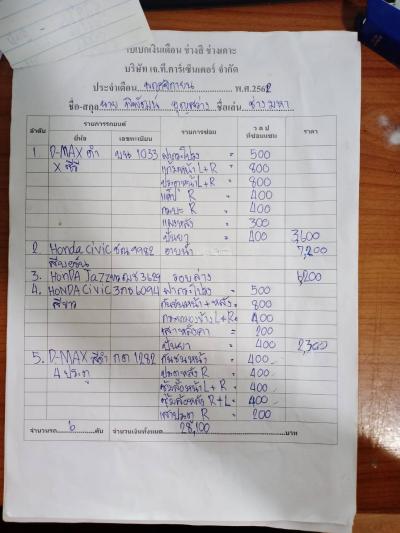 ใบเบิกเงินเดือน ช่างสี ช่างเคาะ
บริษัท เจ.ที.คาร์เซ็นเตอร์ จำกัด
ประจำเดือน พฤศจิกายน พ.ศ.2562
ชื่อ-สกุล นาย ชื่อเล่น ช่างมหา
ลำดับ รายการรถยนต์ รายการซ่อม ว ด ป ราคา
ยี่ห้อ เลขทะเบียน ที่ซ่อมแซม
1 D-MAX ดำ 1033 ฝากระโปรง = 500
แก้มหน้า L+R = 800
ประตูหน้า L+R = 800
แค็ป R = 400
กะบะ R = 400
แผงหลัง = 300
ปั่นยา = 400 3,600
2 Honda Civic 9982 อาบน้ำ 7,200
3. HONDA Jazz 3629 รอบล่าง 6200
4. HONDA CIVIC 3กธ 6094 ฝากระโปรง = 500
สีขาว กันชนหน้า+หลัง = 800
L+R = 400
เสาหลังคา = 200
ปั่นยา = 400 2,300
5. D-MAX สีดำ กต 1282 กันชนหน้า = 400
4 ประตู ประตูหลัง R = 400
ซุ้มล้อหน้า L+R = 400
ซุ้มล้อหลัง R+L = 400
เสาประตู R = 200
จำนวนรถ 6 คัน จำนวนเงินทั้งหมด 28,100 บาท